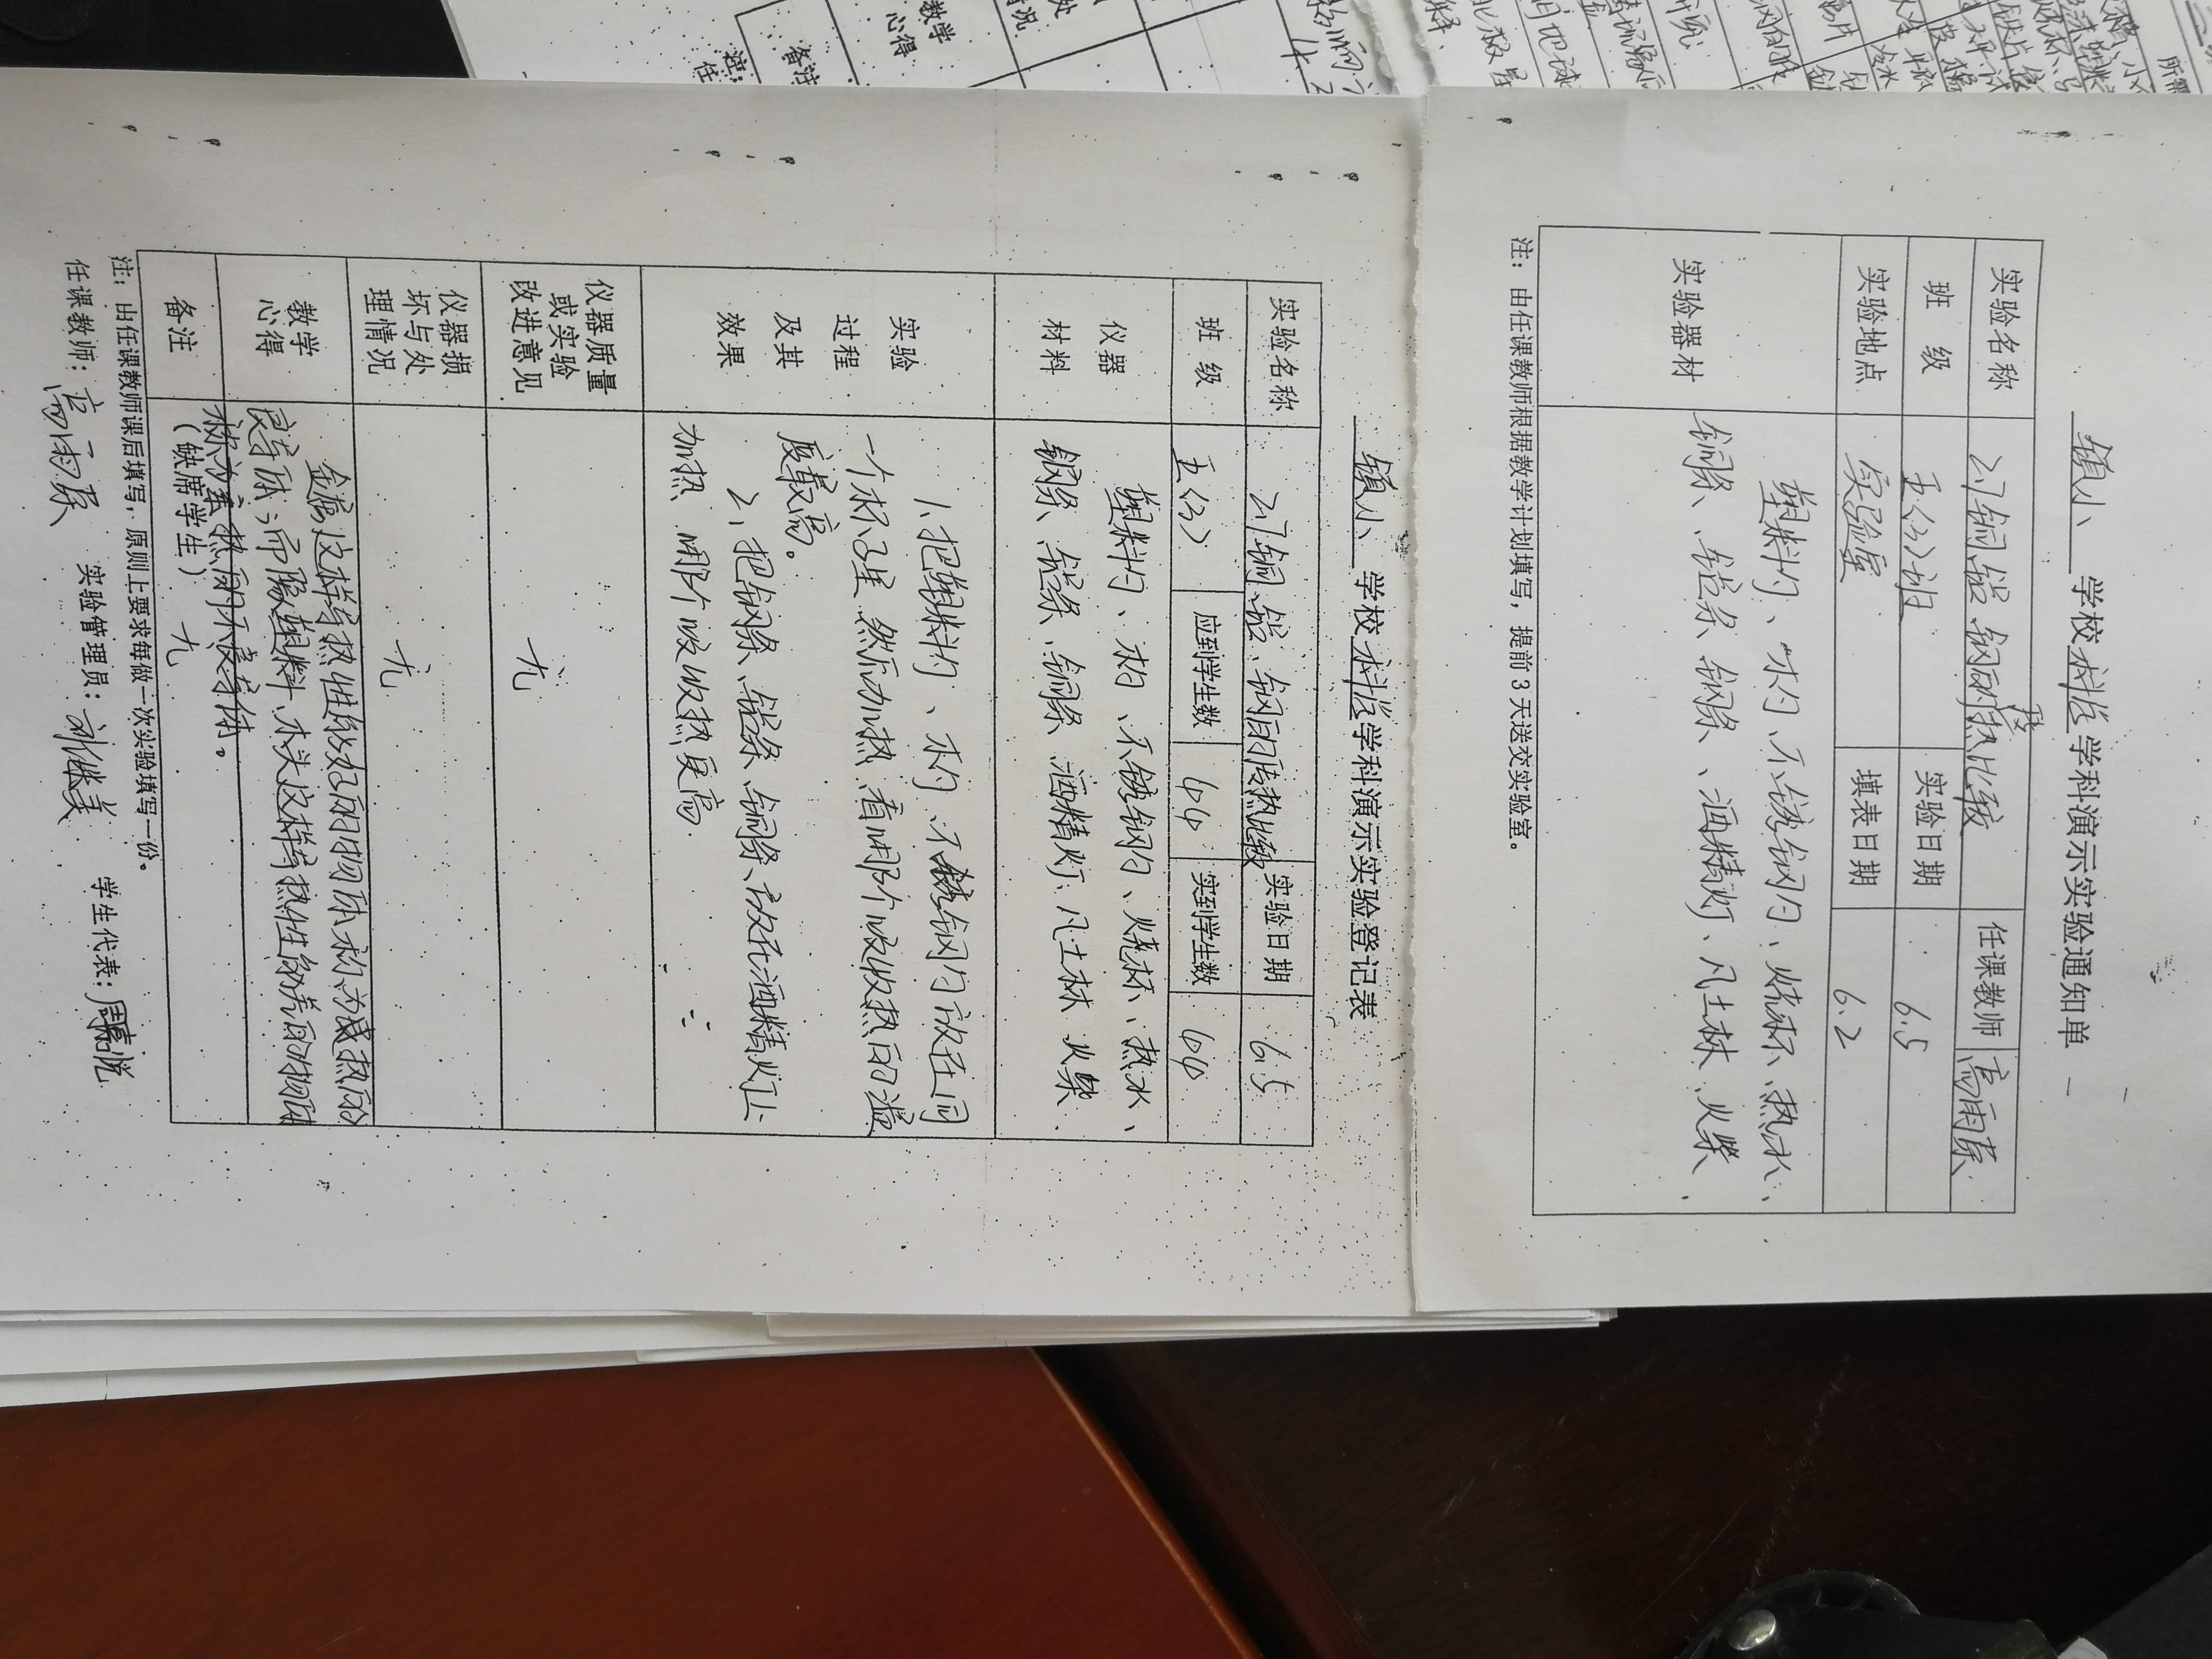 镇小 学校 科学 学科演示实验通知单
实验名称 27铜、铝、钢的传热比较 任课教师 高雨蔡
班 级 五(3)班 实验日期 6.5
实验地点 实验室 填表日期 6.2
实验器材
塑料勺、木勺、不锈钢勺、烧杯、热水、
铜条、铝条、钢条、酒精灯、凡士林、火柴
注：由任课教师根据教学计划填写，提前3天送交实验室。
镇小 学校 科学 学科演示实验登记表
实验名称 27铜、铝、钢的传热比较 实验日期 6.5
班 级 五(3) 应到学生数 64 实到学生数 64
仪器
材料
塑料勺、木勺、不锈钢勺、烧杯、热水、
钢条、铝条、铜条、酒精灯、凡士林 火柴
实验
过程
及其
效果
1、把塑料勺、木勺、不锈钢勺放在同
一个杯子里，然后加热，看哪个吸收热的温
度最高。
2、把钢条、铝条、铜条、放在酒精灯上
加热 哪个吸收热更高
仪器质量
或实验
改进意见
无
仪器损
坏与处
理情况
无
教学
心得
金属这样导热性能好的物体称为热的
良导体；而像塑料、木头这样导热性能差的物体
称为热的不良导体。
备注
(缺席学生)
无
注：由任课教师课后填写，原则上要求每做一次实验填写一份。
任课教师：高雨蔡 实验管理员：刘继美 学生代表：周嘉悦
教学
心得
备注